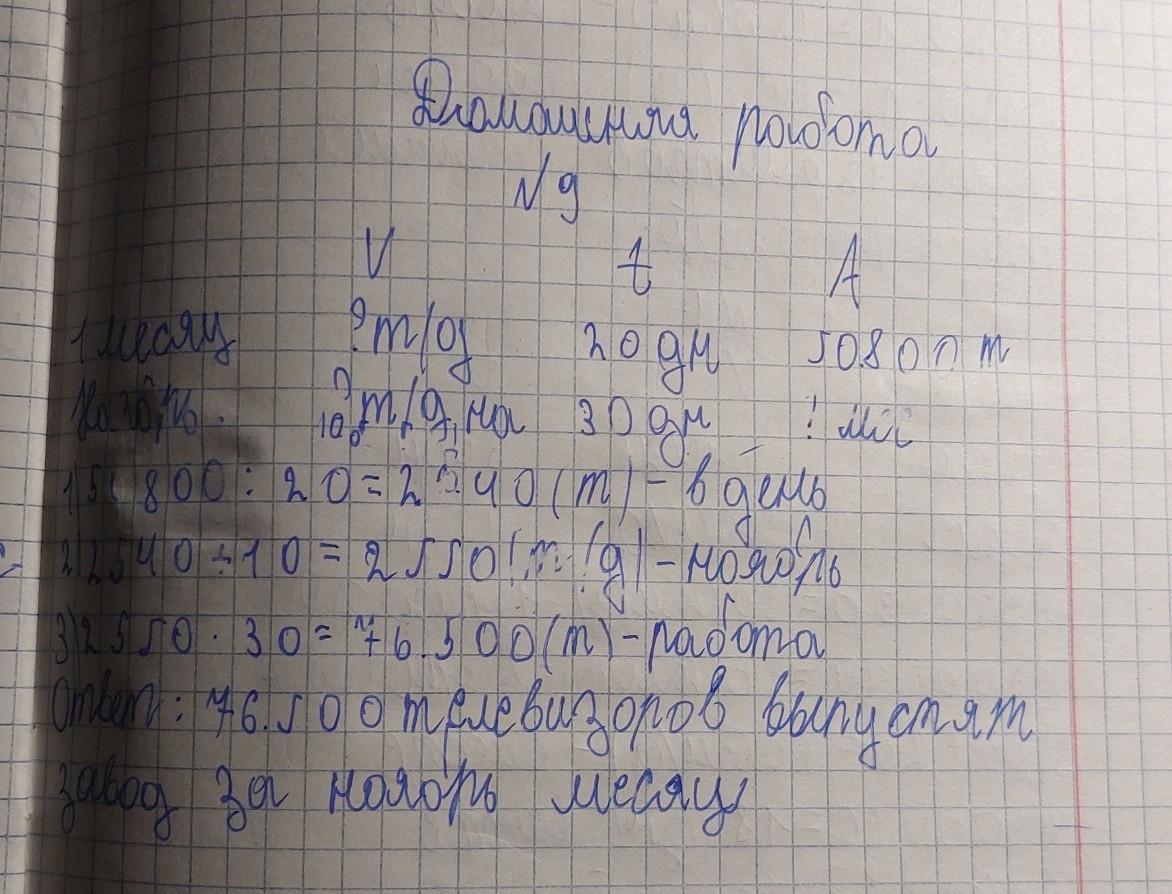 Домашняя работа
№9
V t A
1 месяц ?т/д 20 дн 50.800 т
Ноябрь. ?т/д, на 30 дн
1) 50 800 : 20 = 2540 (т) - в день
2) 2540 + 10 = 2550 (т/д) - ноябрь
3) 2550 · 30 = 76.500 (т) - работа
Ответ: 76.500 телевизоров выпустят
завод за ноябрь месяц